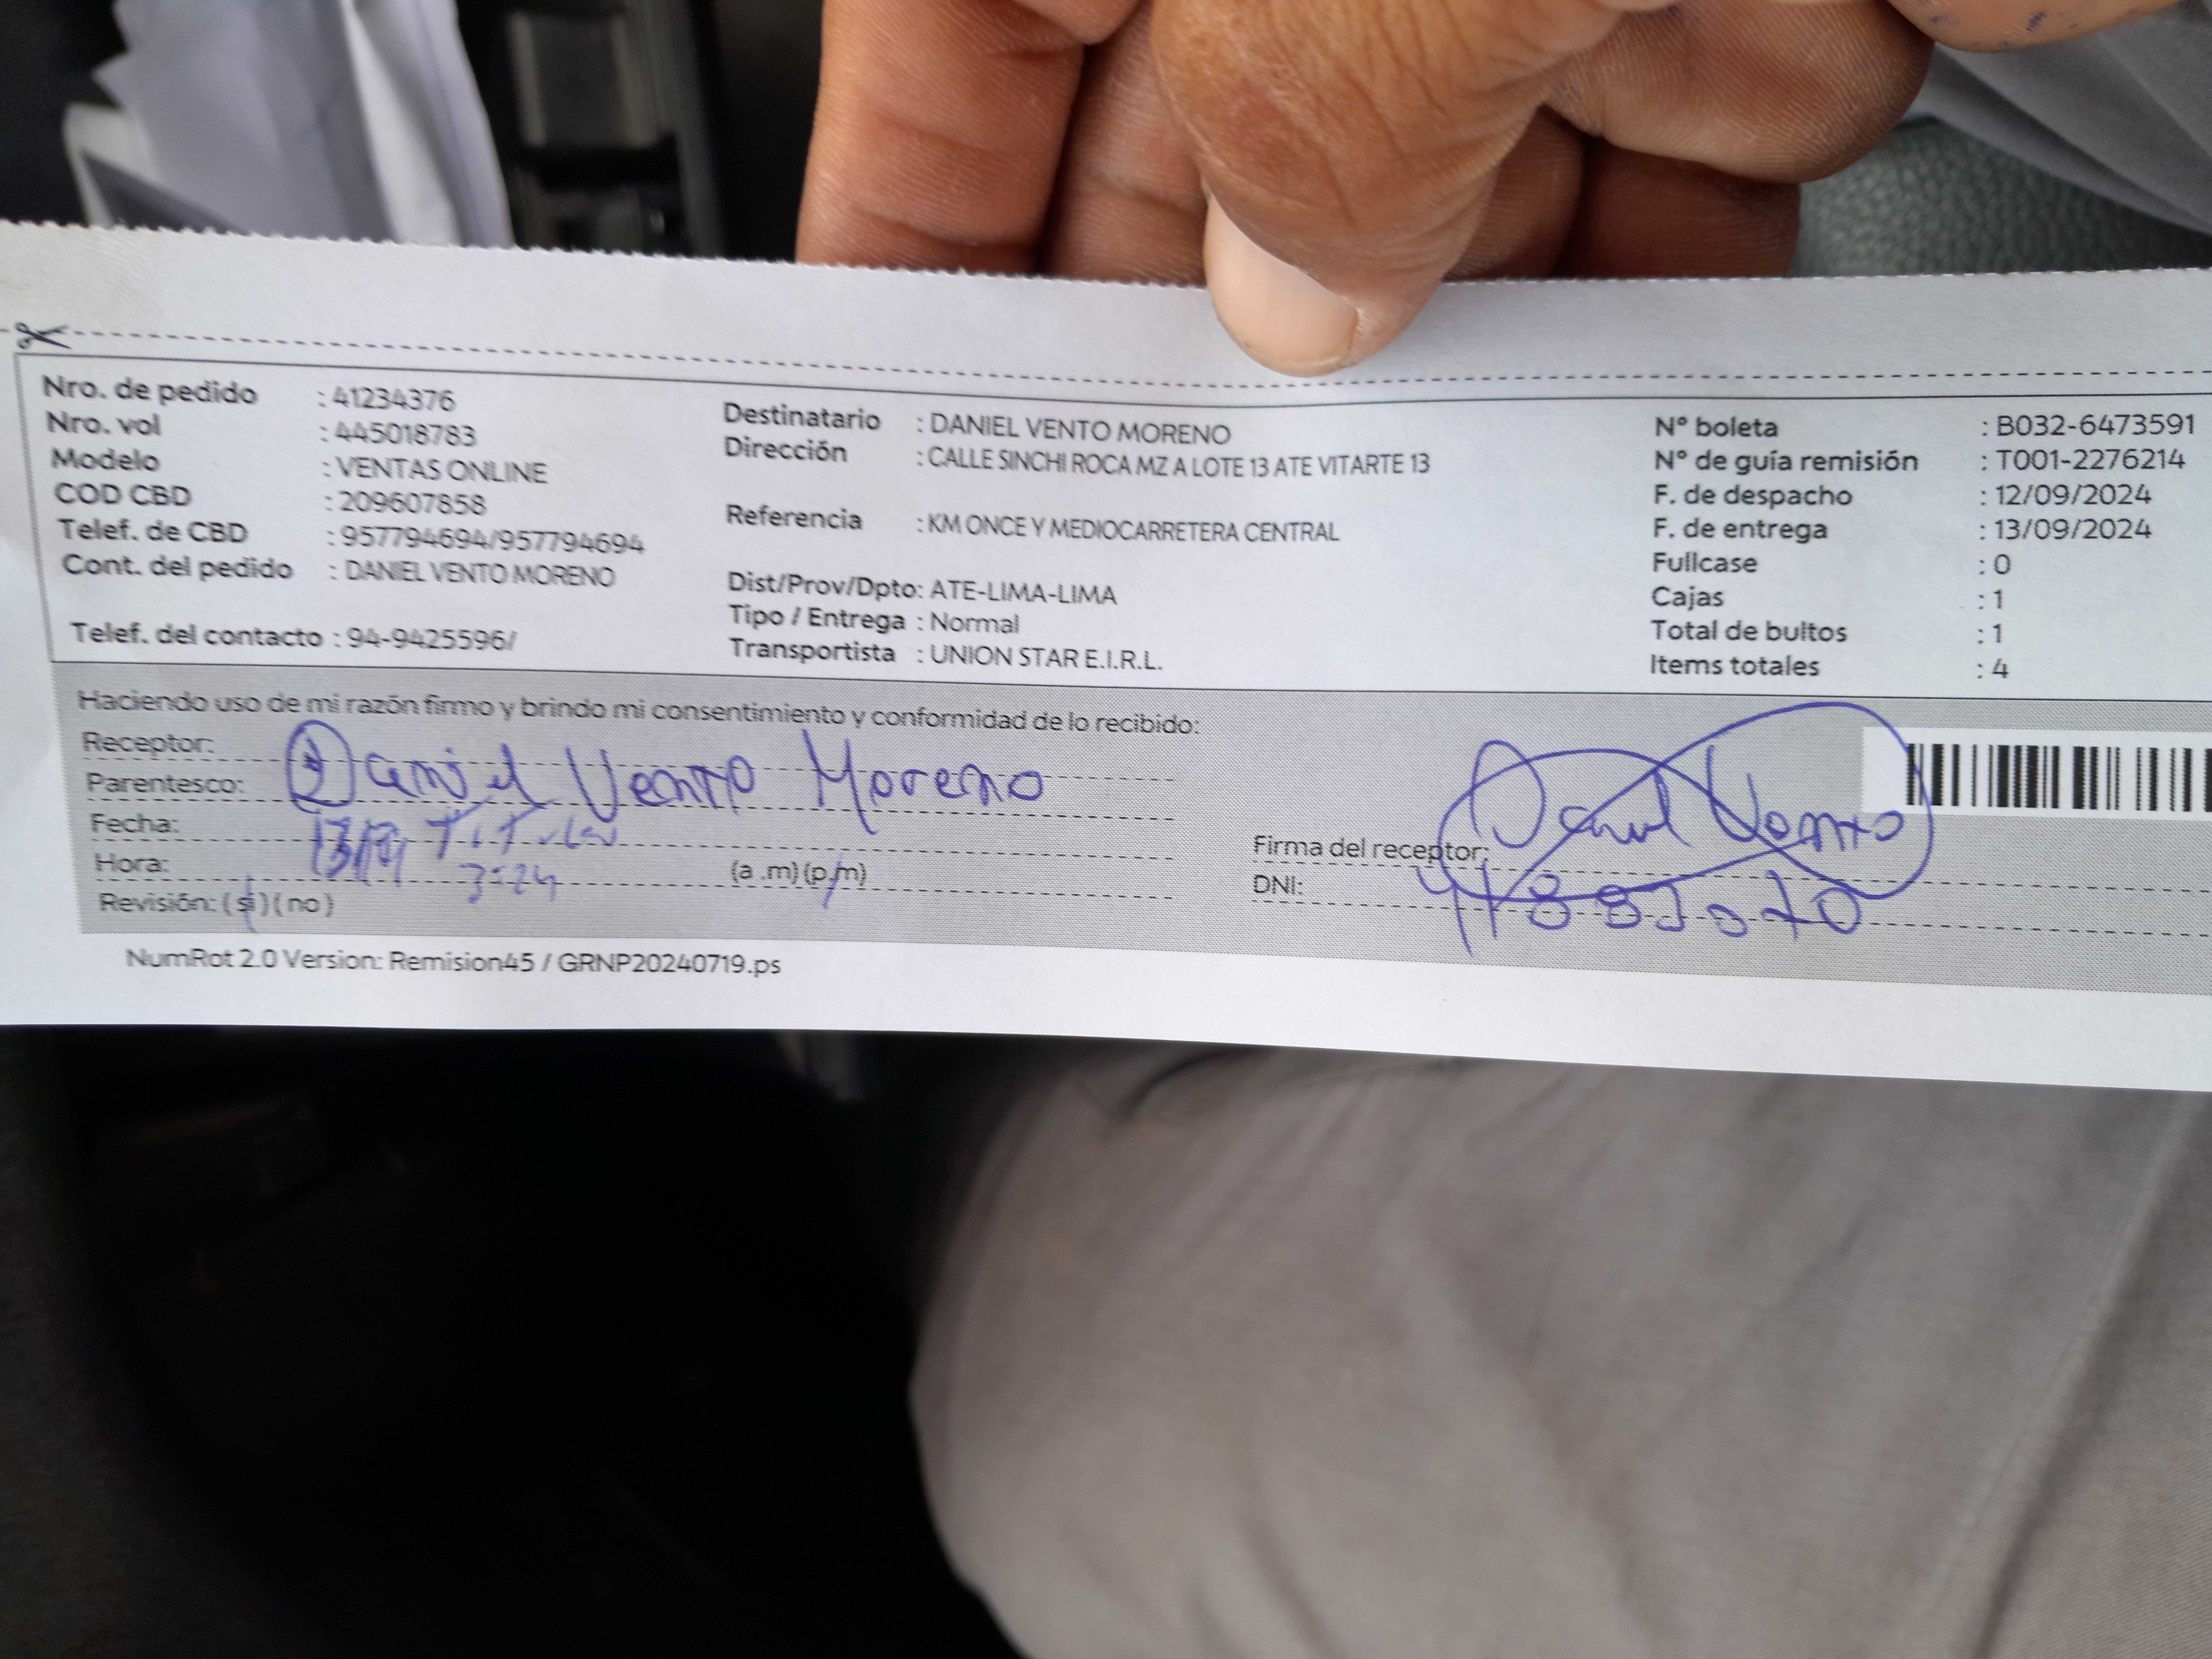 Nro. de pedido : 41234376
Nro. vol : 445018783
Modelo : VENTAS ONLINE
COD CBD : 209607858
Telef. de CBD : 957794694/957794694
Cont. del pedido : DANIEL VENTO MORENO
Telef. del contacto : 94-9425596/
Destinatario : DANIEL VENTO MORENO
Dirección : CALLE SINCHI ROCA MZ A LOTE 13 ATE VITARTE 13
Referencia : KM ONCE Y MEDIOCARRETERA CENTRAL
Dist/Prov/Dpto: ATE-LIMA-LIMA
Tipo / Entrega : Normal
Transportista : UNION STAR E.I.R.L.
N° boleta : B032-6473591
N° de guía remisión : T001-2276214
F. de despacho : 12/09/2024
F. de entrega : 13/09/2024
Fullcase : 0
Cajas : 1
Total de bultos : 1
Items totales : 4
Haciendo uso de mi razón firmo y brindo mi consentimiento y conformidad de lo recibido:
Receptor: Daniel Vento Moreno
Parentesco: Titular
Fecha: 13/9
Hora: 3:24 (a .m) (p.m)
Revisión: (si) (no)
Firma del receptor: Daniel Vento
DNI:
NumRot 2.0 Version: Remision45 / GRNP20240719.ps